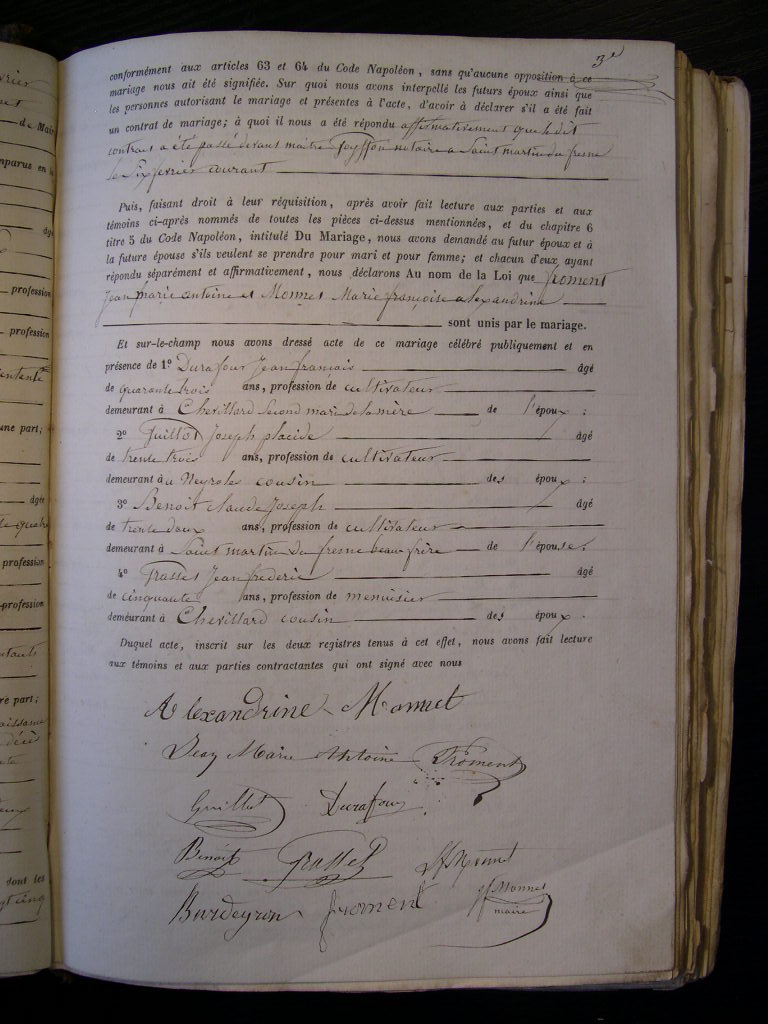 3e
conformément aux articles 63 et 64 du Code Napoléon, sans qu'aucune opposition à ce
mariage nous ait été signifiée. Sur quoi nous avons interpellé les futurs époux ainsi que
les personnes autorisant le mariage et présentes à l'acte, d'avoir à déclarer s'il a été fait
un contrat de mariage; à quoi il nous a été répondu affirmativement que le dit
contrat a été passé devant maitre notaire a Saint martin du fresne
le Six fevrier courant
Puis, faisant droit à leur réquisition, après avoir fait lecture aux parties et aux
témoins ci-après nommés de toutes les pièces ci-dessus mentionnées, et du chapitre 6
titre 5 du Code Napoléon, intitulé Du Mariage, nous avons demandé au futur époux et à
la future épouse s'ils veulent se prendre pour mari et pour femme; et chacun d'eux ayant
répondu séparément et affirmativement, nous déclarons Au nom de la Loi que froment
Jean marie antoine et Monnet Marie françoise alexandrine
sont unis par le mariage.
Et sur-le-champ nous avons dressé acte de ce mariage célébré publiquement et en
présence de 1º Durafour Jean francois âgé
de quarante trois ans, profession de cultivateur
demeurant à Chevillard Second mari de la mère de l'époux;
2º Guillot Joseph placide âgé
de trente trois ans, profession de cultivateur
demeurant à Neyroles cousin des époux;
3º Benoit claude Joseph âgé
de trente deux ans, profession de cultivateur
demeurant à Saint martin du fresne beau frère de l'épouse;
4º Grasset Jean frederic âgé
de cinquante ans, profession de menuisier
demeurant à Chevillard cousin des époux.
Duquel acte, inscrit sur les deux registres tenus à cet effet, nous avons fait lecture
aux témoins et aux parties contractantes qui ont signé avec nous
Alexandrine Monnet
Jean Marie Antoine Froment
Guillot Durafour
Benoit Grasset Monnet
Burdeyron froment Monnet
maire